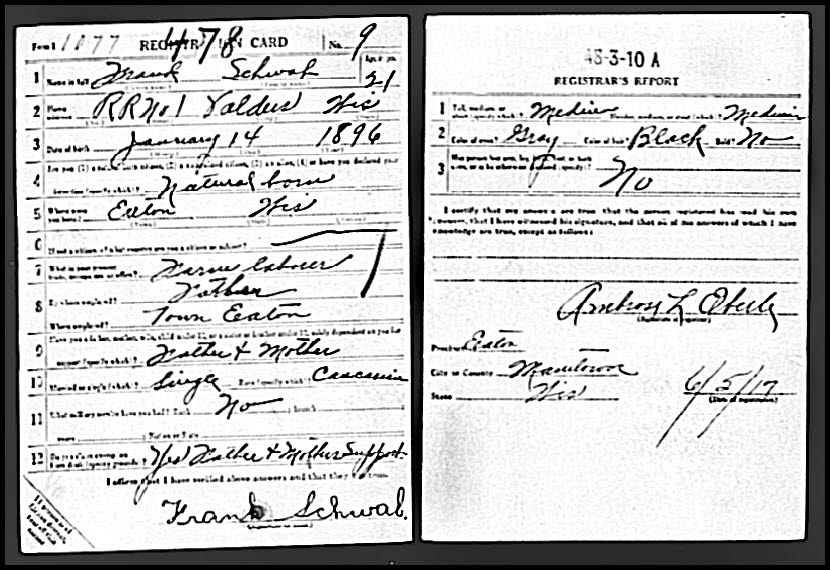 Form 1 1077 REGISTRATION CARD No. 9
478
Age, in yrs.
1 Name in full Frank Schwab 21
2 Home address RR No 1 Valders Wis
3 Date of birth January 14 1896
Are you (1) a natural born citizen, (2) a naturalized citizen, (3) an alien, (4) or have you declared your
4 intention (specify which)? Natural born
5 Where were you born? Eaton Wis
6 If not a citizen, of what country are you a citizen or subject?
7 What is your present trade, occupation, or office? Farm labourer
8 By whom employed? Father
Where employed? Town Eaton
Have you a father, mother, wife, child under 12, or a sister or brother under 12, solely dependent on you for
9 support (specify which)? Father & Mother
10 Married or single (which)? Single Race (specify which)? Caucasian
11 What military service have you had? Rank No branch
years Nation or State
12 Do you claim exemption from draft (specify grounds)? Yes Father & Mother Support
I affirm that I have verified above answers and that they are true.
Frank Schwab
48-3-10 A
REGISTRAR'S REPORT
1 Tall, medium, or short (specify which)? Medium Slender, medium, or stout (which)? Medium
2 Color of eyes? Gray Color of hair? Black Bald? No
3 Has person lost arm, leg, hand, foot, or both
No
I certify that my answers are true, that the person registered has read his own
answers, that I have witnessed his signature, and that all of his answers of which I have
knowledge are true, except as follows:
(Signature of registrar)
Precinct Eaton
City or County Manitowoc
State Wis
6/5/17
(Date of registration)